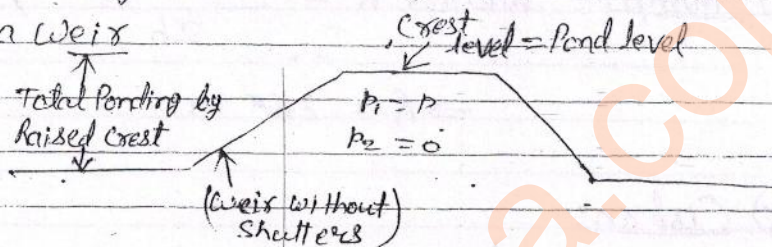 a Weir
Crest
level = Pond level
Total Ponding by
Raised Crest
p₁ = p
p₂ = 0
(Weir without
Shutters)